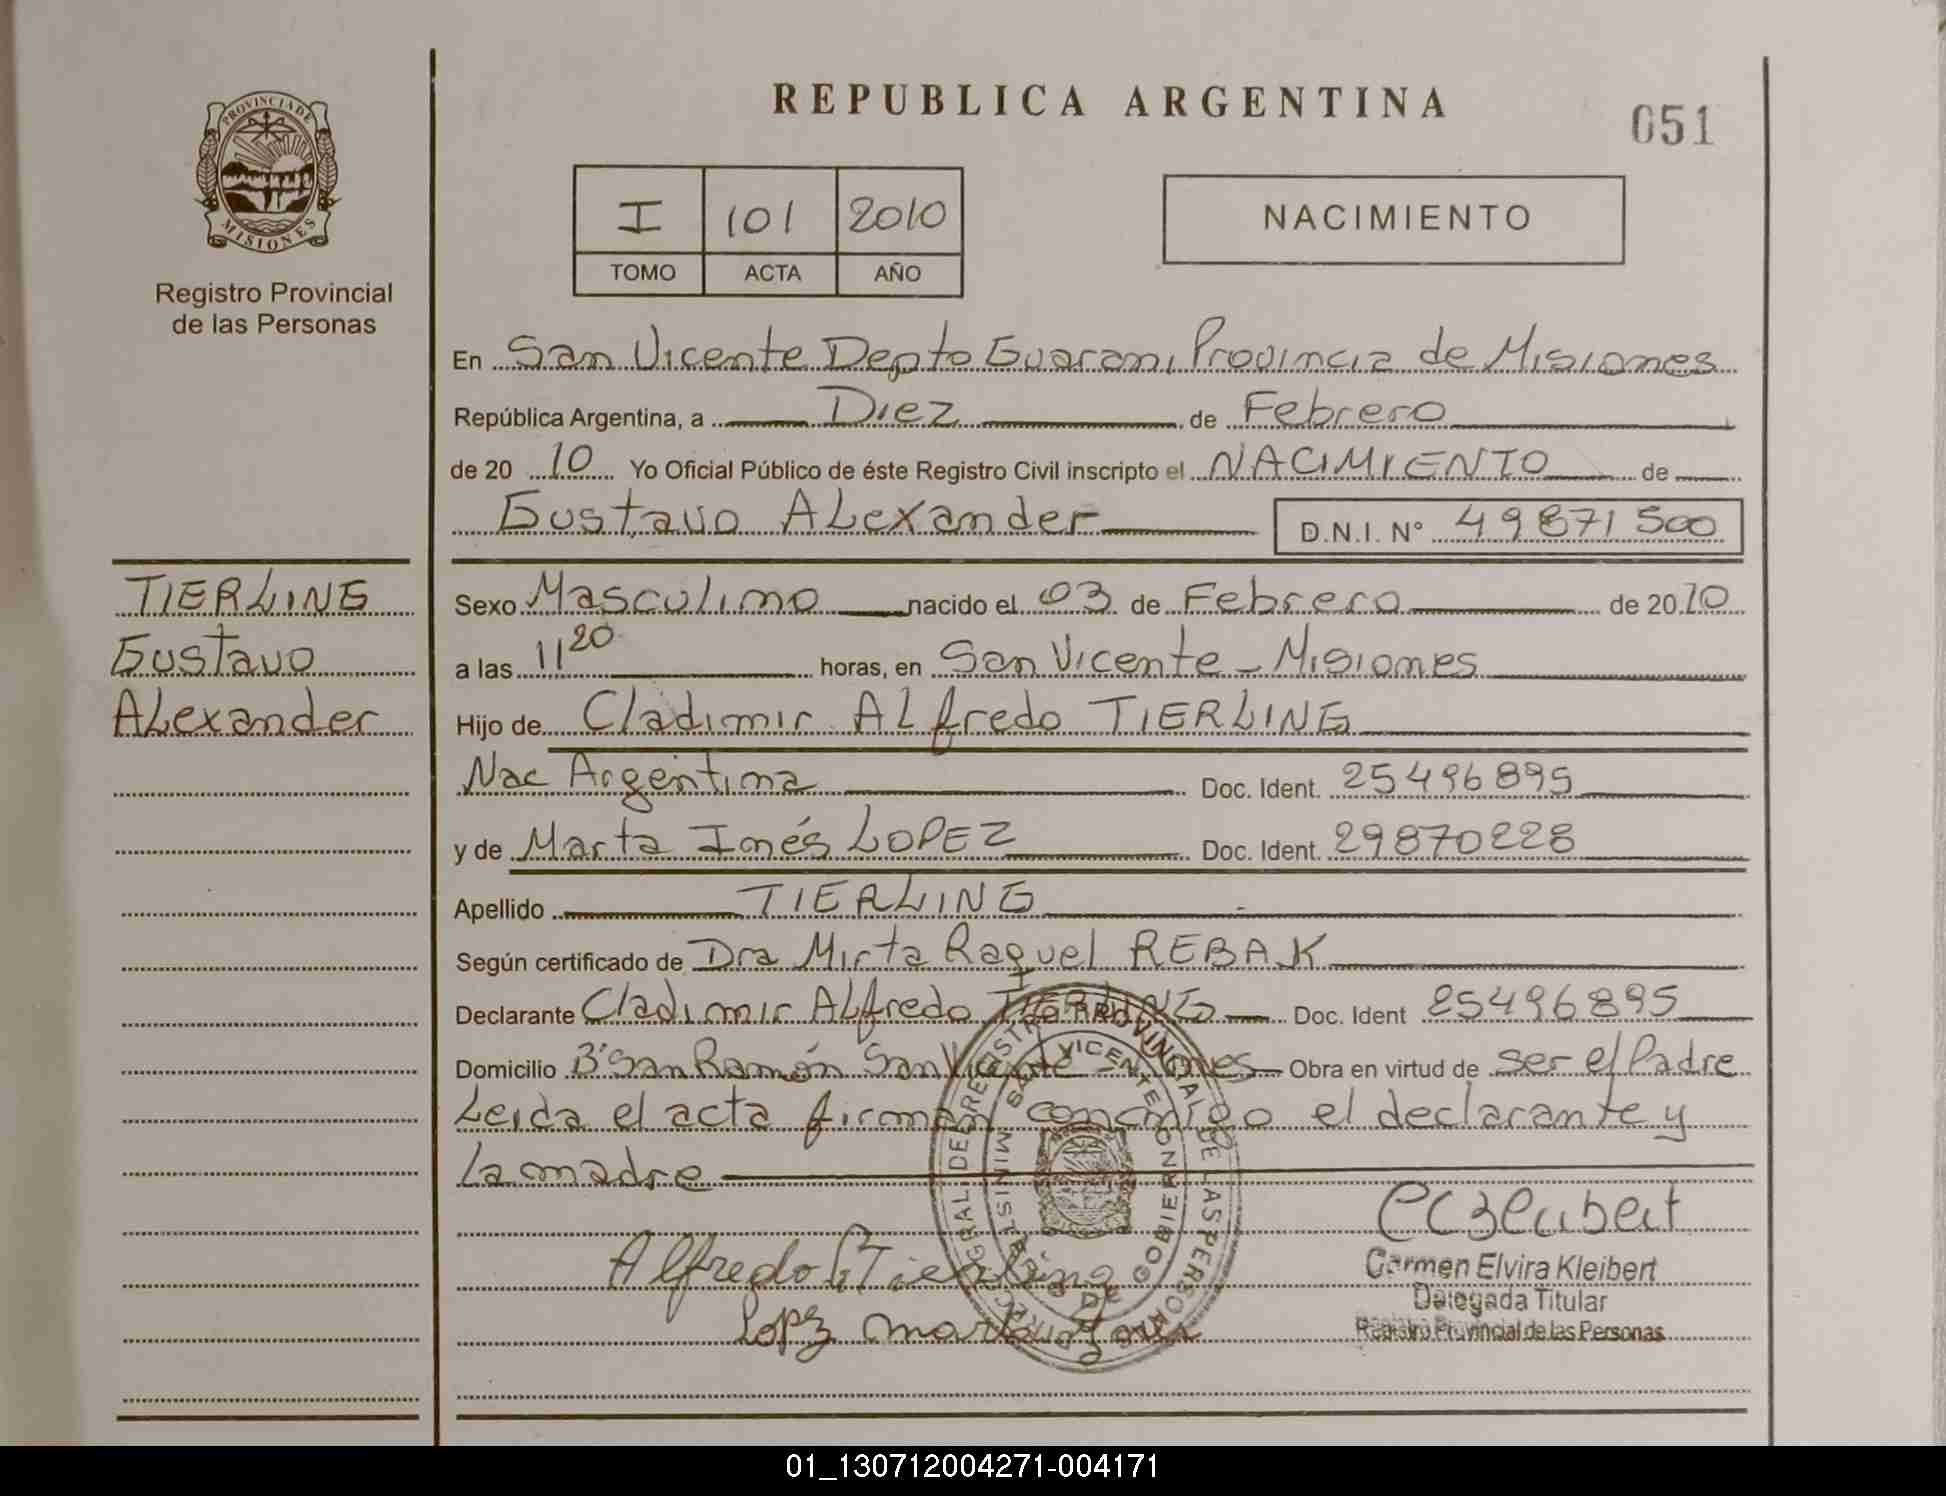 REPUBLICA ARGENTINA
051
PROVINCIA DE MISIONES
Registro Provincial
de las Personas
I 101 2010
TOMO ACTA AÑO
NACIMIENTO
En San Vicente Depto Guarani Provincia de Misiones
República Argentina, a Diez de Febrero
de 20 10 Yo Oficial Público de éste Registro Civil inscripto el NACIMIENTO de
Gustavo ALexander D.N.I. Nº 49871500
TIERLING
Gustavo
ALexander
Sexo Masculino nacido el 03 de Febrero de 20 10
a las 11 20 horas, en San Vicente - Misiones
Hijo de Cladimir ALfredo TIERLING
Nac Argentina Doc. Ident. 25496895
y de Marta Inés LOPEZ Doc. Ident. 29870228
Apellido TIERLING
Según certificado de Dra Mirta Raquel REBAK
Declarante Cladimir ALfredo TIERLING Doc. Ident 25496895
Domicilio Bº San Ramón San Vicente Misiones Obra en virtud de ser el Padre
Leida el acta firman conmigo el declarante y
La madre
Alfredo C Tierling
Lopez Marta Ines
Carmen Elvira Kleibert
Delegada Titular
Registro Provincial de las Personas
01_130712004271-004171